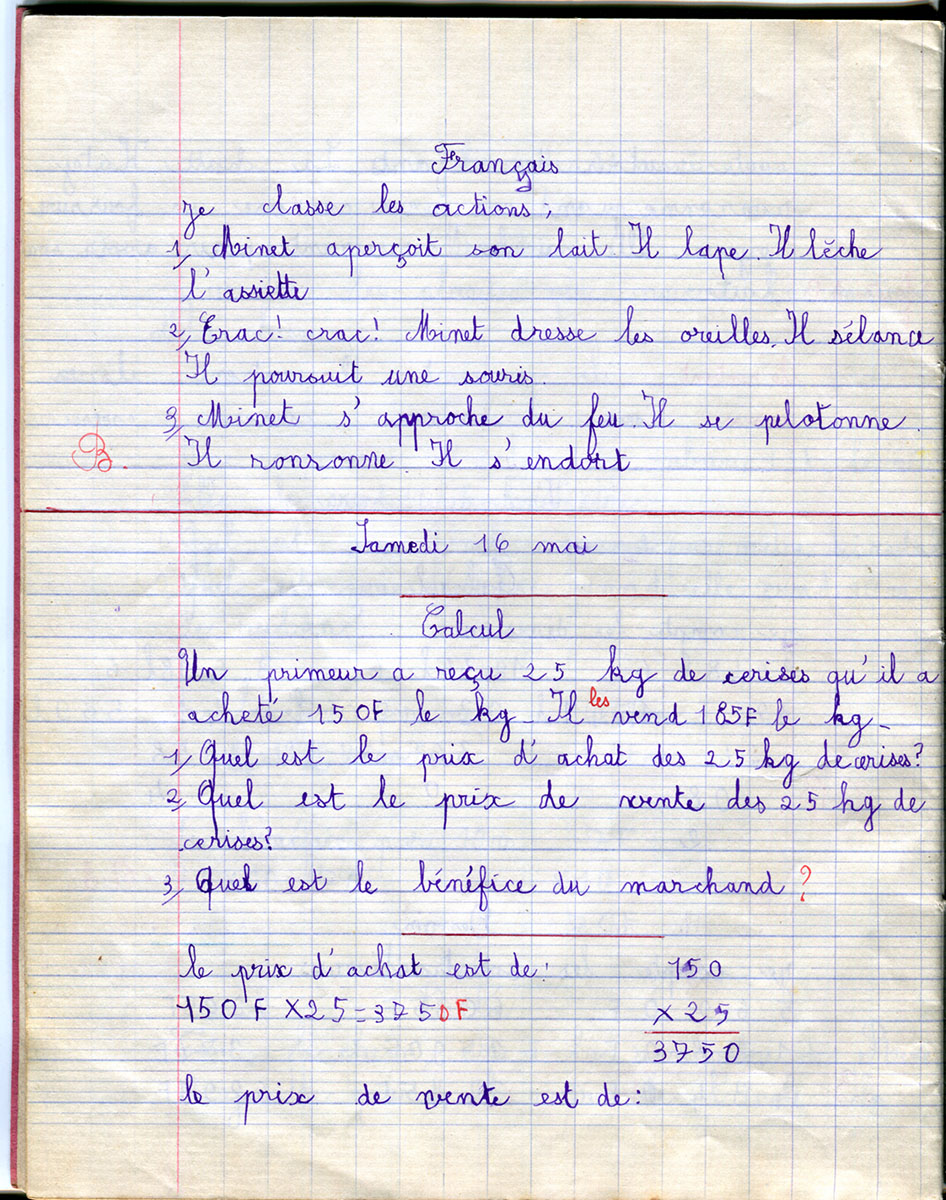 Français
Je classe les actions ;
1, Minet aperçoit son lait. Il lape. Il lèche
l'assiette
2, Crac! crac! Minet dresse les oreilles. Il sélance
Il poursuit une souris.
3, Minet s'approche du feu. Il se pelotonne.
B. Il ronronne. Il s'endort
Samedi 16 mai
Calcul
Un primeur a reçu 25 kg de cerises qu'il a
acheté 150F le kg - Il les vend 185F le kg -
1, Quel est le prix d'achat des 25 kg de cerises?
2, Quel est le prix de vente des 25 kg de
cerises?
3, Quel est le bénéfice du marchand ?
le prix d'achat est de: 150
150 F X 25 = 3750F X 25
3750
le prix de vente est de: